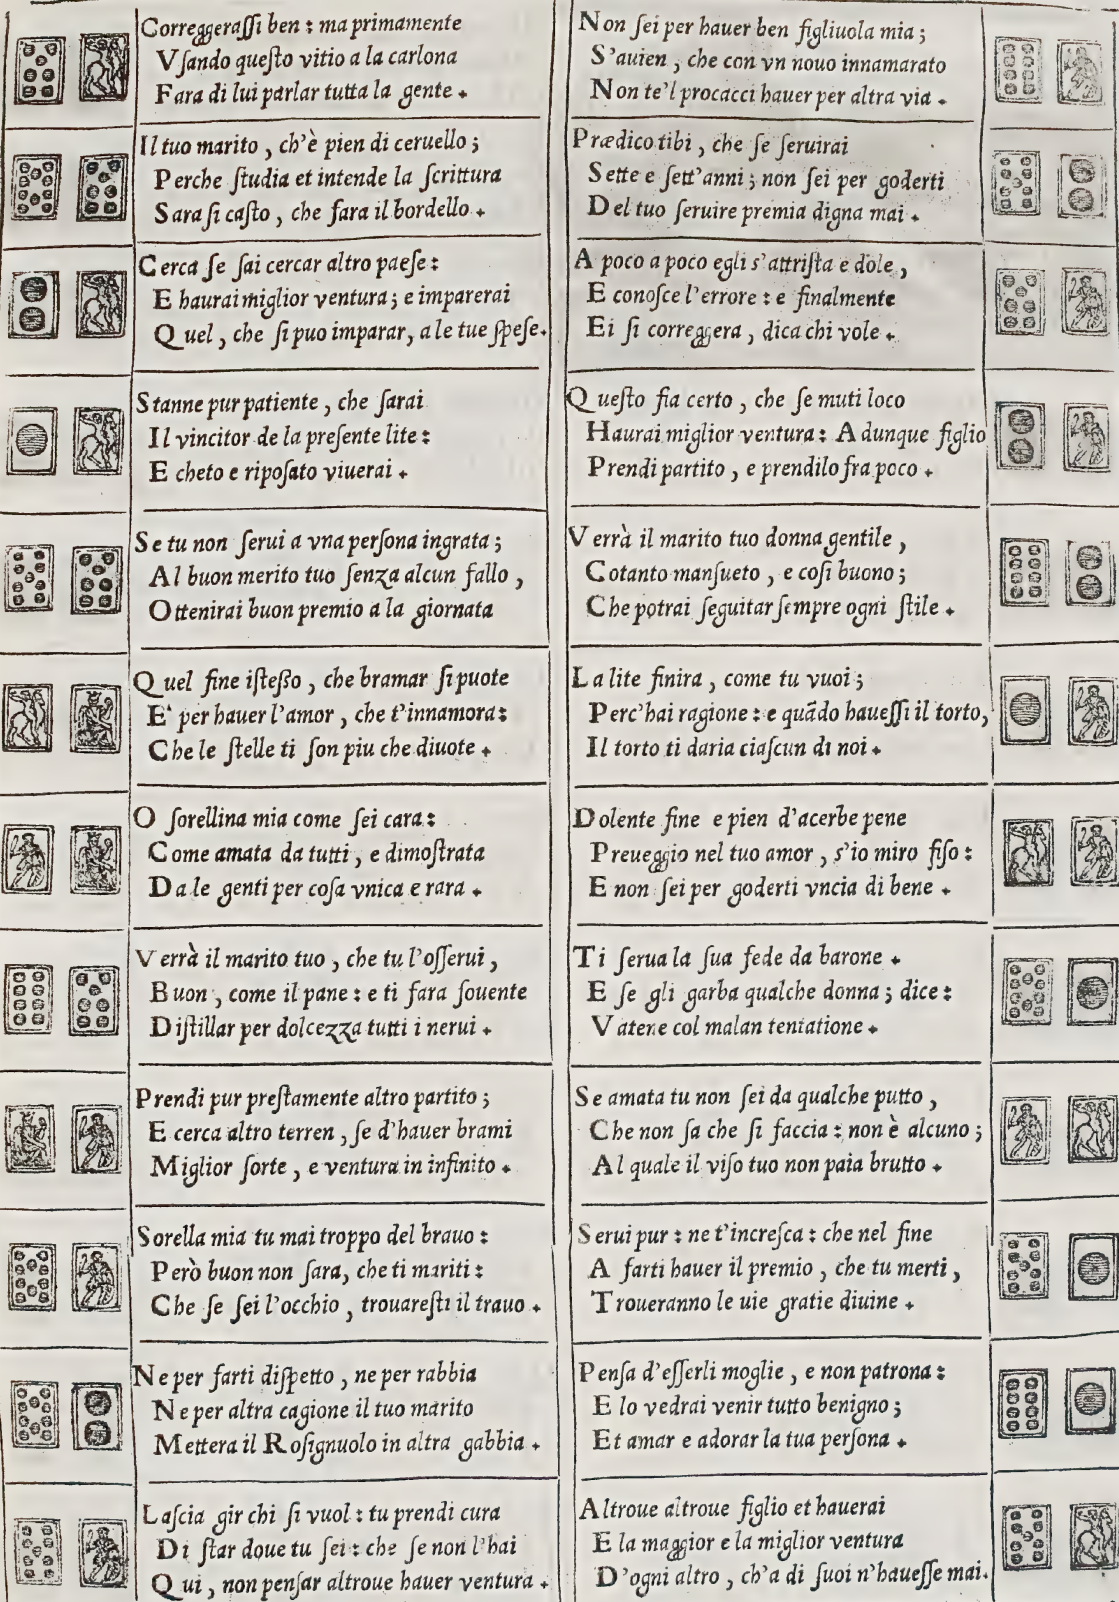 Correggeraſſi ben : ma primamente
Vſando queſto vitio a la carlona
Fara di lui parlar tutta la gente .
Il tuo marito , ch'è pien di ceruello ;
Perche ſtudia et intende la ſcrittura
Sara ſi caſto , che fara il bordello .
Cerca ſe ſai cercar altro paeſe :
E haurai miglior ventura ; e imparerai
Quel , che ſi puo imparar, a le tue ſpeſe.
Stanne pur patiente , che ſarai
Il vincitor de la preſente lite :
E cheto e ripoſato viuerai .
Se tu non ſerui a vna perſona ingrata ;
Al buon merito tuo ſenza alcun fallo ,
Ottenirai buon premio a la giornata
Quel fine iſteſſo , che bramar ſi puote
E' per hauer l'amor , che t'innamora :
Che le ſtelle ti ſon piu che diuote .
O ſorellina mia come ſei cara :
Come amata da tutti , e dimoſtrata
Da le genti per coſa vnica e rara .
Verrà il marito tuo , che tu l'oſſerui ,
Buon , come il pane : e ti fara ſouente
Diſtillar per dolcezza tutti i nerui .
Prendi pur preſtamente altro partito ;
E cerca altro terren , ſe d'hauer brami
Miglior ſorte , e ventura in infinito .
Sorella mia tu mai troppo del brauo :
Però buon non ſara, che ti mariti :
Che ſe ſei l'occhio , trouareſti il trauo .
Ne per farti diſpetto , ne per rabbia
Ne per altra cagione il tuo marito
Mettera il Roſignuolo in altra gabbia .
Laſcia gir chi ſi vuol : tu prendi cura
Di ſtar doue tu ſei : che ſe non l'hai
Qui , non penſar altroue hauer ventura .
Non ſei per hauer ben figliuola mia ;
S'auien , che con vn nouo innamarato
Non te'l procacci hauer per altra via .
Prædico tibi , che ſe ſeruirai
Sette e ſett'anni ; non ſei per goderti
Del tuo ſeruire premia digna mai .
A poco a poco egli s'attriſta e dole ,
E conoſce l'errore : e finalmente
Ei ſi correggera , dica chi vole .
Queſto fia certo , che ſe muti loco
Haurai miglior ventura : Adunque figlio
Prendi partito , e prendilo fra poco .
Verrà il marito tuo donna gentile ,
Cotanto manſueto , e coſi buono ;
Che potrai ſeguitar ſempre ogni ſtile .
La lite finira , come tu vuoi ;
Perc'hai ragione : e quãdo haueſſi il torto,
Il torto ti daria ciaſcun di noi .
Dolente fine e pien d'acerbe pene
Preueggio nel tuo amor , s'io miro fiſo :
E non ſei per goderti vncia di bene .
Ti ſerua la ſua fede da barone .
E ſe gli garba qualche donna ; dice :
Vatene col malan tentatione .
Se amata tu non ſei da qualche putto ,
Che non ſa che ſi faccia : non è alcuno ;
Al quale il viſo tuo non paia brutto .
Serui pur : ne t'increſca : che nel fine
A farti hauer il premio , che tu merti ,
Troueranno le uie gratie diuine .
Penſa d'eſſerli moglie , e non patrona :
E lo vedrai venir tutto benigno ;
Et amar e adorar la tua perſona .
Altroue altroue figlio et hauerai
E la maggior e la miglior ventura
D'ogni altro , ch'a di ſuoi n'haueſſe mai.